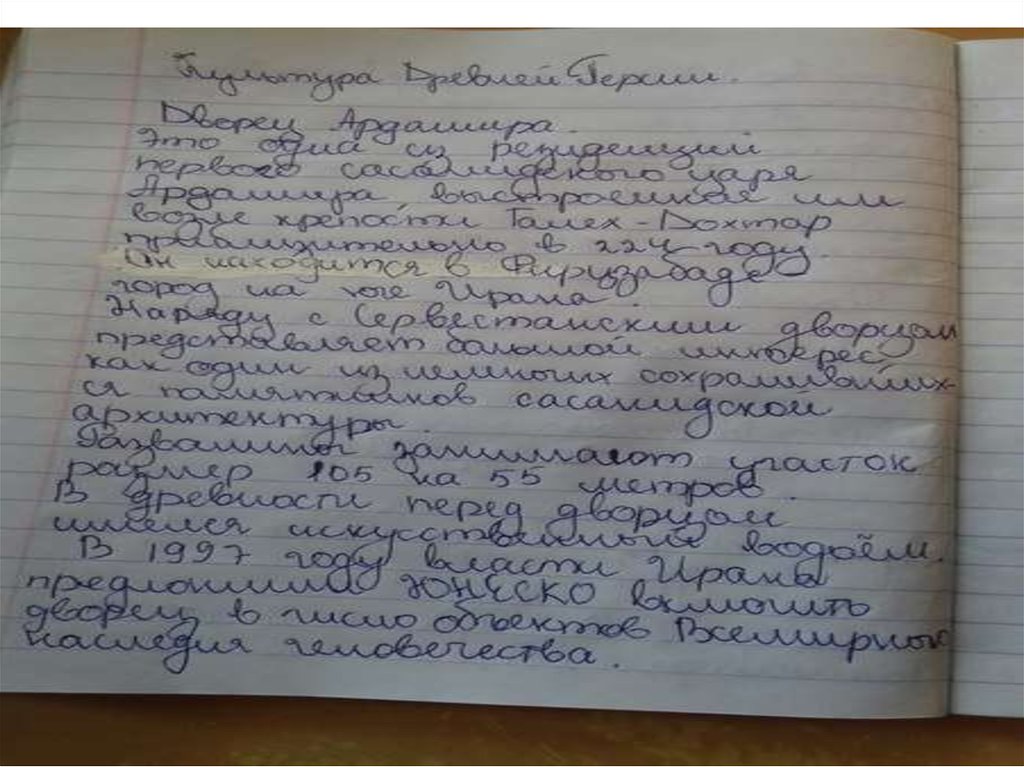 Культура Древней Персии.
Дворец Ардашира.
Это одна из резиденций
первого сасанидского царя
Ардашира, выстроенная им
возле крепости Галех-Дохтар
приблизительно в 224 году.
Он находится в Фирузабаде
город на юге Ирана.
Наряду с Сервестанским дворцом
представляет большой интерес
как один из немногих сохранивших-
ся памятников сасанидской
архитектуры.
Развалины занимают участок
размер 105 на 55 метров.
В древности перед дворцом
имелся искусственный водоём.
В 1997 году власти Ирана
предложили ЮНЕСКО включить
дворец в число объектов Всемирного
наследия человечества.